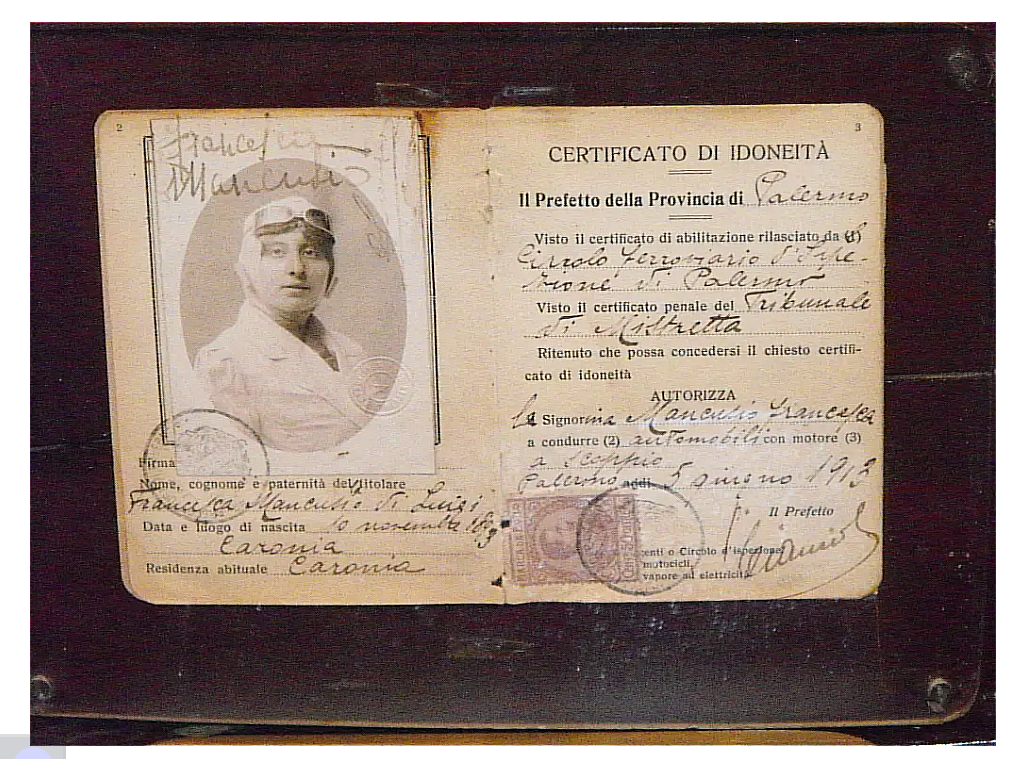 2
Francesca
Mancusio
Firma
Nome, cognome e paternità del titolare
Francesca Mancusio di Luigi
Data e luogo di nascita 10 novembre
Caronia
Residenza abituale Caronia
3
CERTIFICATO DI IDONEITÀ
Il Prefetto della Provincia di Palermo
Visto il certificato di abilitazione rilasciato da (1)
Circolo Ferroviario d'Ispe-
zione di Palermo
Visto il certificato penale del Tribunale
di Mistretta
Ritenuto che possa concedersi il chiesto certifi-
cato di idoneità
AUTORIZZA
la Signorina Mancusio Francesca
a condurre (2) automobili con motore (3)
a scoppio
Palermo addì 5 giugno 1913
Il Prefetto
centi o Circolo d'ispezione
motocicli,
vapore ad elettricità